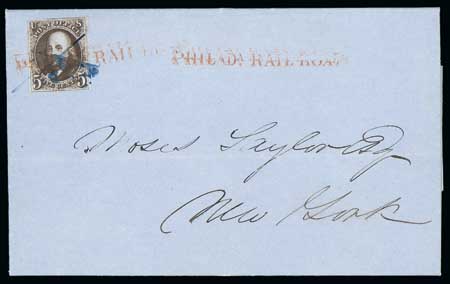 POST OFFICE
5 5
RAIL PHILAD. RAILROAD
Moses Taylor Esq
New York